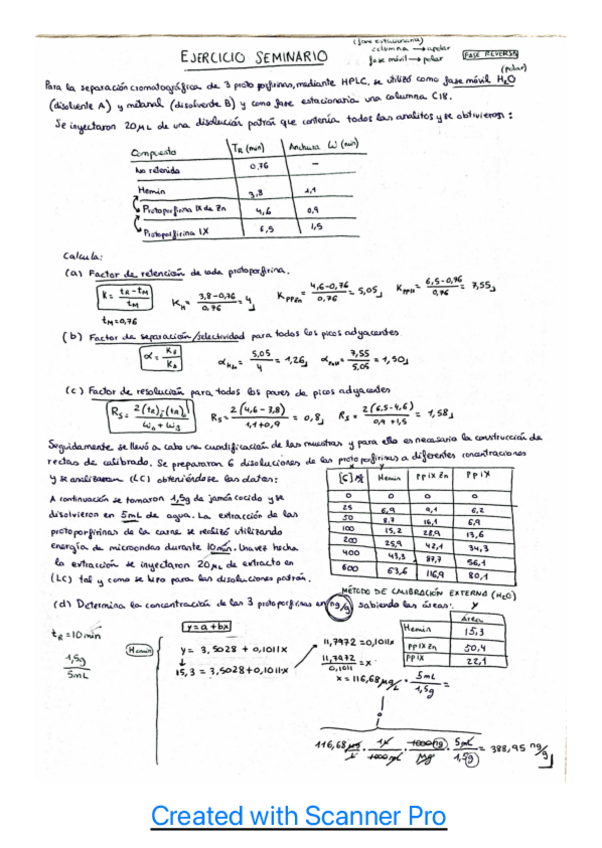 (fase estacionaria)
columna → apolar
fase móvil → polar
FASE REVERSA
EJERCICIO SEMINARIO
(polar)
Para la separación cromatográfica de 3 protoporfirinas, mediante HPLC, se utilizó como fase móvil H2O
(disolvente A) y metanol (disolvente B) y como fase estacionaria una columna C18.
Se inyectaron 20 µL de una disolución patrón que contenía todos los analitos y se obtuvieron:
Compuesto TR (min) Anchura W (min)
No retenido 0,76 –
Hemin 3,8 1,1
Protoporfirina IX de Zn 4,6 0,9
Protoporfirina IX 6,5 1,5
Calcula:
(a) Factor de retención de cada protoporfirina.
K = tR - tM / tM
KH = 3,8-0,76 / 0,76 = 4
KPPZn = 4,6-0,76 / 0,76 = 5,05
KPPIX = 6,5-0,76 / 0,76 = 7,55
tM = 0,76
(b) Factor de separación/selectividad para todos los picos adyacentes
α = KB / KA
α = 5,05 / 4 = 1,26
α = 7,55 / 5,05 = 1,50
(c) Factor de resolución para todos los pares de picos adyacentes
RS = 2(4,6 - 3,8) / 1,1+0,9 = 0,8
RS = 2(6,5-4,6) / 0,9+1,5 = 1,58
Seguidamente se llevó a cabo una cuantificación de las muestras y para ello es necesaria la construcción de
rectas de calibrado. Se prepararon 6 disoluciones de las protoporfirinas a diferentes concentraciones
y se analizaron (LC) obteniéndose los datos:
Hemin PPIX Zn PPIX
0 0 0 0
25 6,9 9,1 6,2
50 8,7 16,1 6,9
100 15,2 28,9 13,6
200 25,9 42,1 34,3
400 43,3 87,7 56,1
600 63,6 116,9 80,1
A continuación se tomaron 1,5g de jamón cocido y se
disolvieron en 5mL de agua. La extracción de las
protoporfirinas de la carne se realizó utilizando
energía de microondas durante 10min. Una vez hecha
la extracción se inyectaron 20 µL de extracto en
(LC) tal y como se hizo para las disoluciones patrón.
MÉTODO DE CALIBRACIÓN EXTERNA
(d) Determina la concentración de las 3 protoporfirinas en ng/g sabiendo las áreas: y
Área
Hemin 15,3
PPIX Zn 50,4
PPIX 22,1
tR = 10 min
1,5g / 5mL
Hemin
y = a + bx
y = 3,5028 + 0,1011x
15,3 = 3,5028 + 0,1011x
11,7972 = 0,1011x
11,7972 / 0,1011 = x
x = 116,68 µg/L · 5mL / 1,5g =
116,68 µg / L · 1L / 1000mL · 1000ng / µg · 5mL / 1,5g = 388,95 ng/g
Created with Scanner Pro